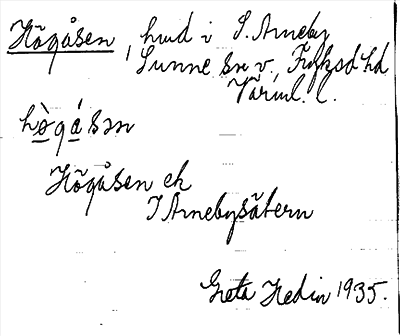 Högåsen, hmd i S. Arneby
Sunne sn v., Fryksd hd
Värml. l.
hö̀gåsən
Högåsen ek
S Arnebysätern
Greta Hedin 1935.